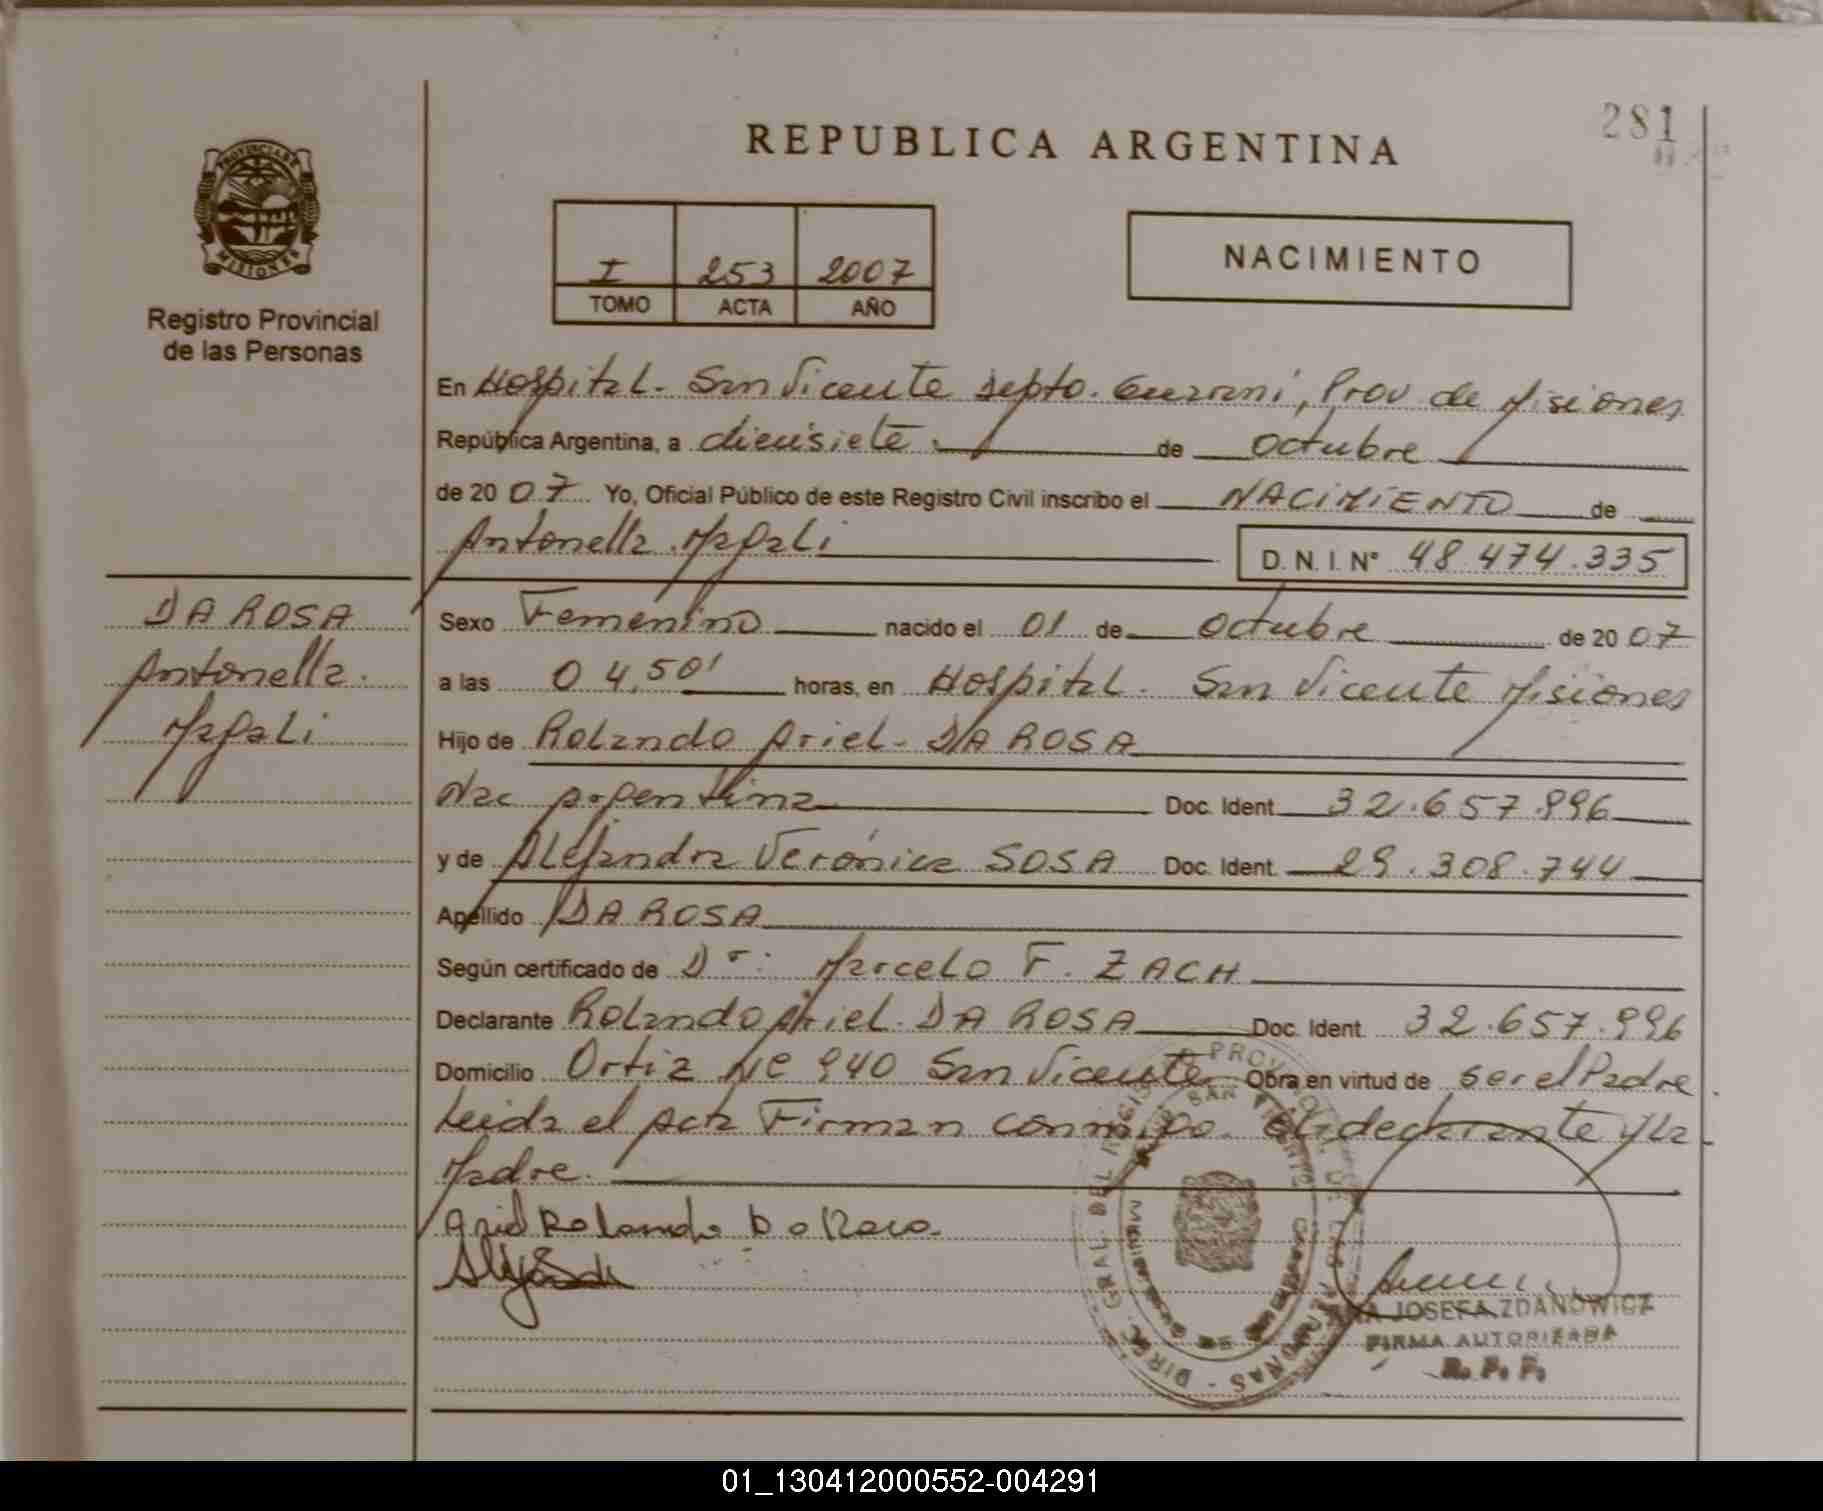 281
REPUBLICA ARGENTINA
PROVINCIA DE
MISIONES
Registro Provincial
de las Personas
I 253 2007
TOMO ACTA AÑO
NACIMIENTO
En Hospital. San Vicente Depto. Guaraní, Prov de Misiones
República Argentina, a diecisiete de octubre
de 2007 Yo, Oficial Público de este Registro Civil inscribo el NACIMIENTO de
Antonella Magali D. N. I. N° 48.474.335
DA ROSA
Antonella.
Magali
Sexo Femenino nacido el 01 de octubre de 2007
a las 04,50' horas, en Hospital. San Vicente Misiones
Hijo de Rolando Ariel DA ROSA
Nac Argentina Doc. Ident. 32.657.996
y de Alejandra Verónica SOSA Doc. Ident. 29.308.744
Apellido DA ROSA
Según certificado de Dr: Marcelo F. ZACH
Declarante Rolando Ariel DA ROSA Doc. Ident. 32.657.996
Domicilio Ortiz Nº 940 San Vicente Obra en virtud de ser el Padre
Leida el Acta Firman conmigo. El declarante y la
Madre.
Ariel Rolando Da Rosa
JOSEFA ZDANOWICZ
FIRMA AUTORIZADA
R. P. P.
01_130412000552-004291